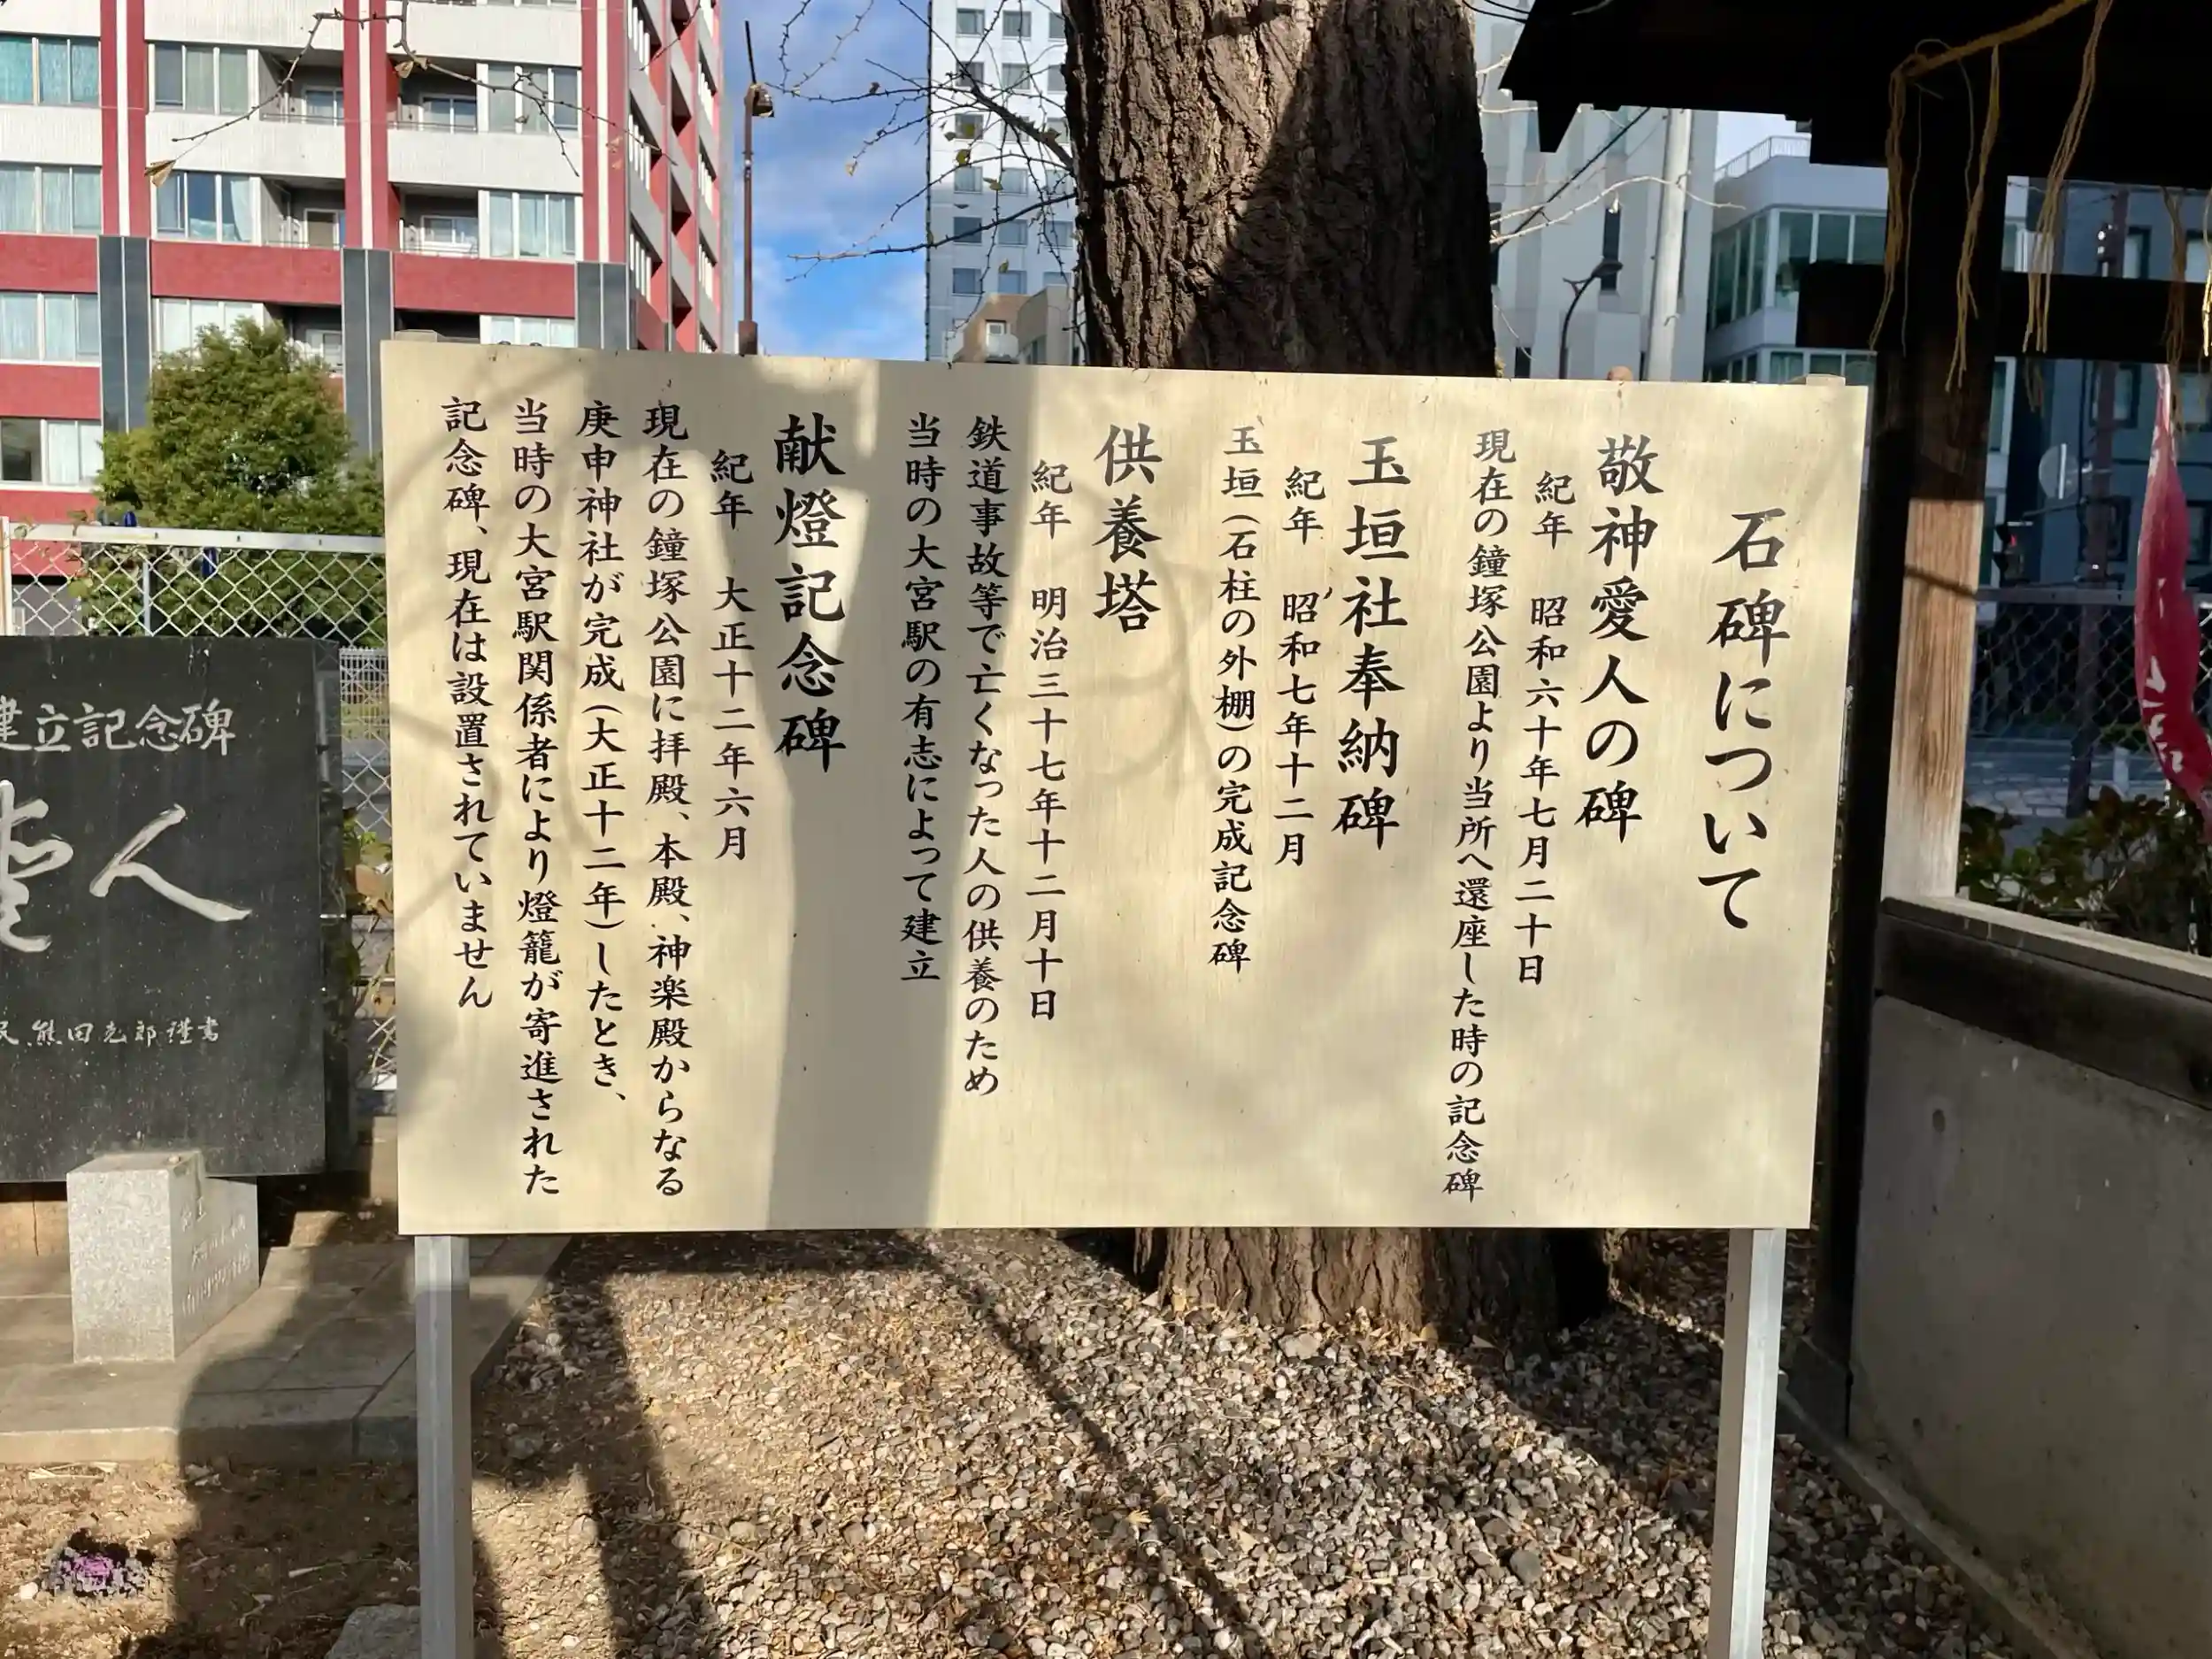 石碑について
敬神愛人の碑
紀年　昭和六十年七月二十日
現在の鐘塚公園より当所へ還座した時の記念碑
玉垣社奉納碑
紀年　昭和七年十二月
玉垣（石柱の外棚）の完成記念碑
供養塔
紀年　明治三十七年十二月十日
鉄道事故等で亡くなった人の供養のため
当時の大宮駅の有志によって建立
献燈記念碑
紀年　大正十二年六月
現在の鐘塚公園に拝殿、本殿、神楽殿からなる
庚申神社が完成（大正十二年）したとき、
当時の大宮駅関係者により燈籠が寄進された
記念碑、現在は設置されていません
建立記念碑
人
熊田克郎謹書